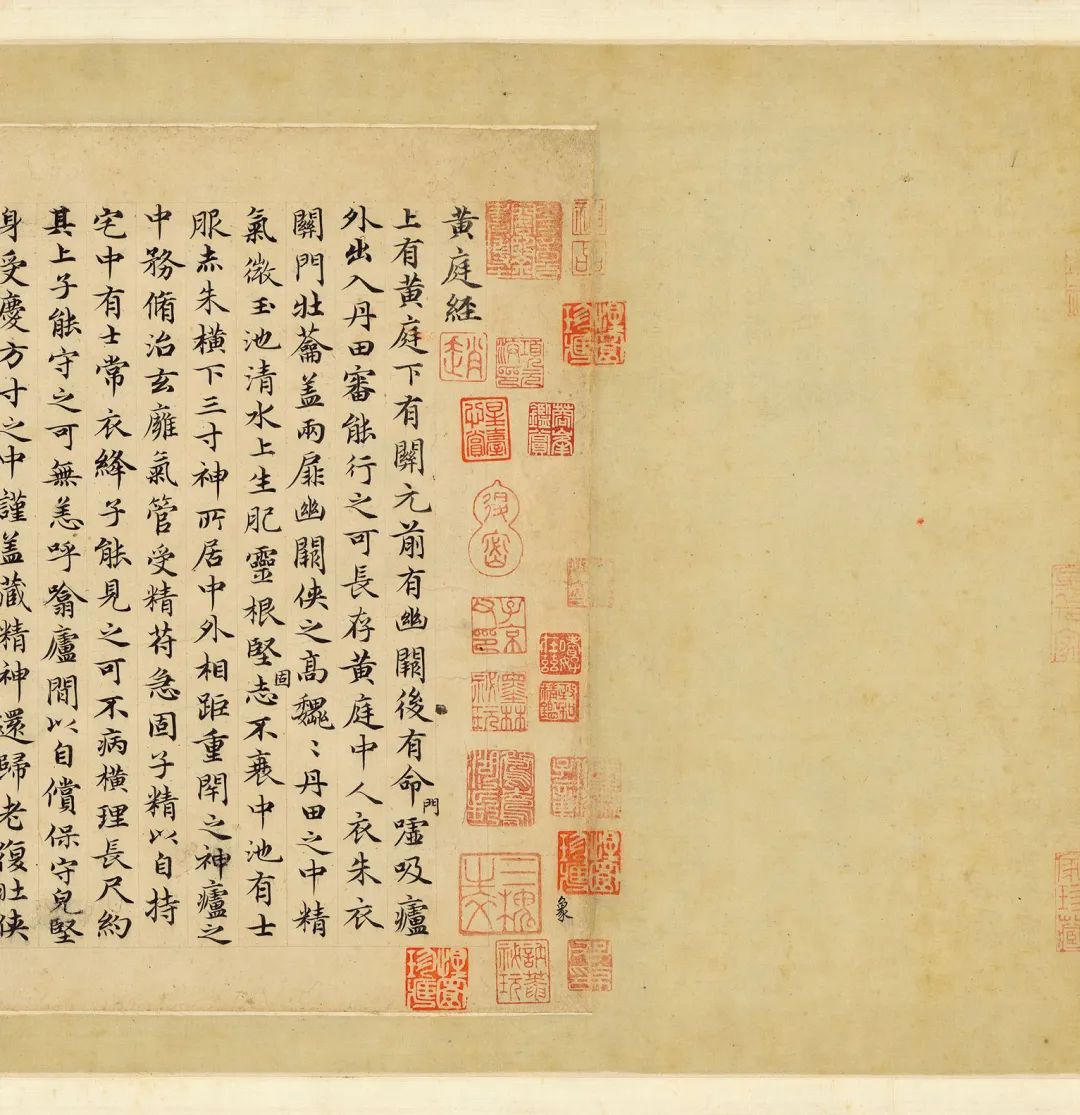 黄庭経
上有黄庭下有關元前有幽闕後有命門嘘吸廬
外出入丹田審能行之可長存黄庭中人衣朱衣
關門壮蘥盖兩扉幽闕侠之高魏〻丹田之中精
氣微玉池清水上生肥靈根堅固志不衰中池有士
服赤朱横下三寸神所居中外相距重閉之神廬之
中務脩治玄廱氣管受精苻急固子精以自持
宅中有士常衣絳子能見之可不病横理長尺約
其上子能守之可無恙呼噏廬間以自償保守皃堅
身受慶方寸之中謹盖藏精神還歸老復壮侠
神品
趙
項元汴印
子京父印
墨林祕玩
象